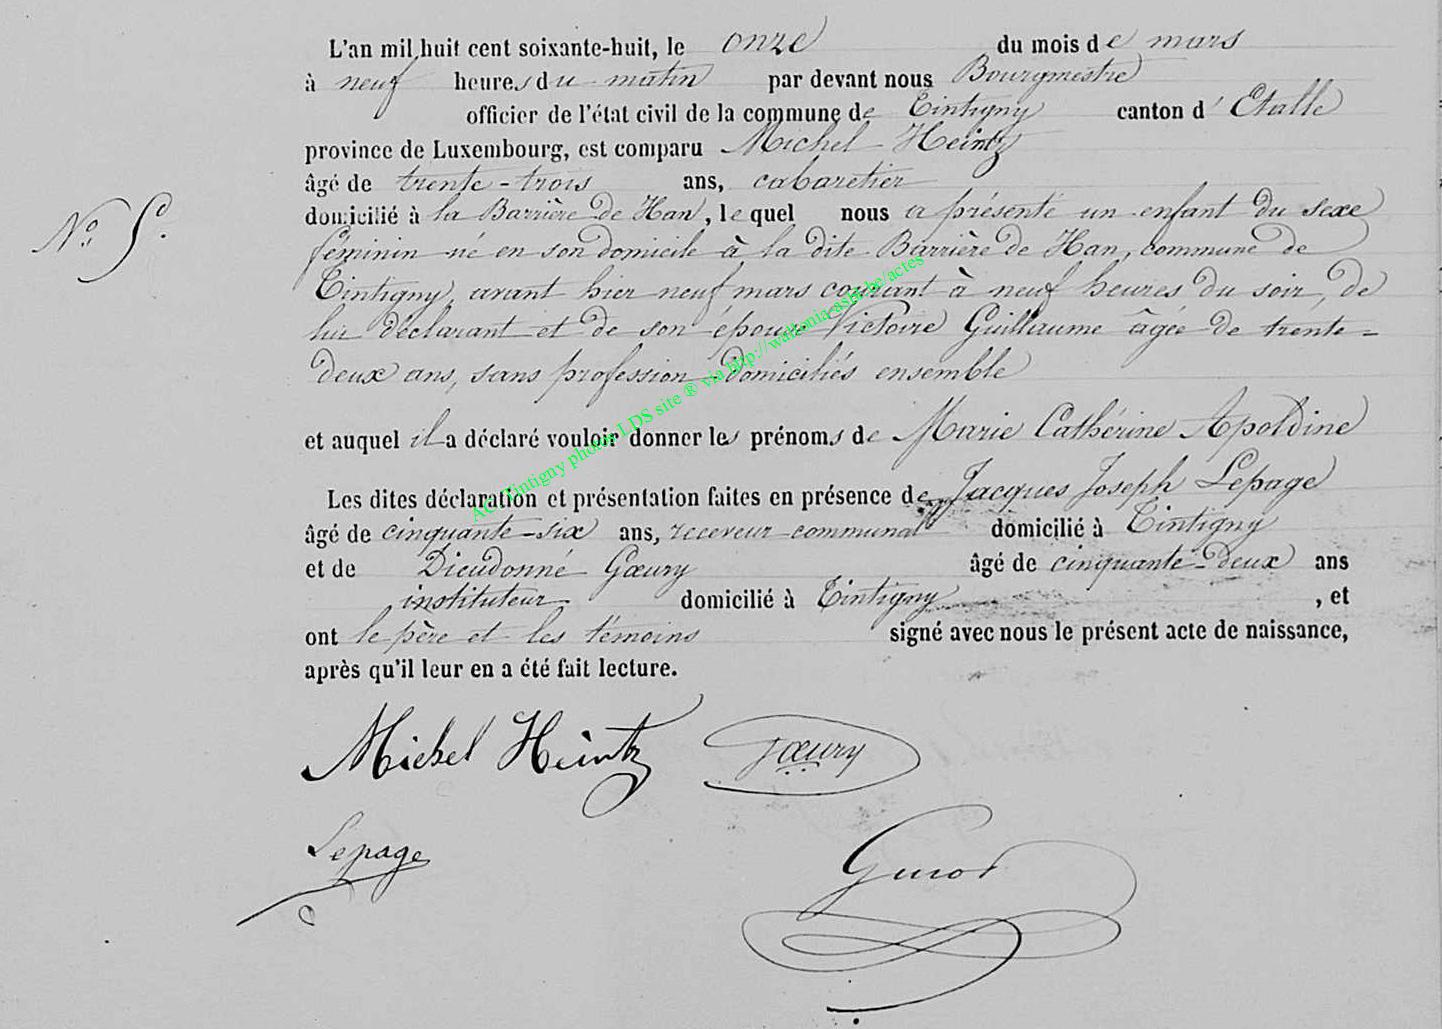 L'an mil huit cent soixante-huit, le onze du mois de mars
à neuf heures du matin par devant nous Bourgmestre
officier de l'état civil de la commune de Tintigny canton d' Etalle
province de Luxembourg, est comparu Michel Heintz
âgé de trente-trois ans, cabaretier
domicilié à la Barrière de Han, le quel nous a présenté un enfant du sexe
N° 5.
féminin né en son domicile à la dite Barrière de Han, commune de
Tintigny, avant hier neuf mars courant à neuf heures du soir, de
lui déclarant et de son épouse Victoire Guillaume âgée de trente-
deux ans, sans profession domiciliés ensemble
et auquel il a déclaré vouloir donner les prénoms de Marie Cathérine Apoldine
Les dites déclaration et présentation faites en présence de Jacques Joseph Lepage
âgé de cinquante-six ans, receveur communal domicilié à Tintigny
et de Dieudonné Gœury âgé de cinquante-deux ans
instituteur domicilié à Tintigny , et
ont le père et les témoins signé avec nous le présent acte de naissance,
après qu'il leur en a été fait lecture.
Michel Heintz Gœury
Lepage
AC Tintigny photos LDS site ® via http://wallonia-asbl.be/actes